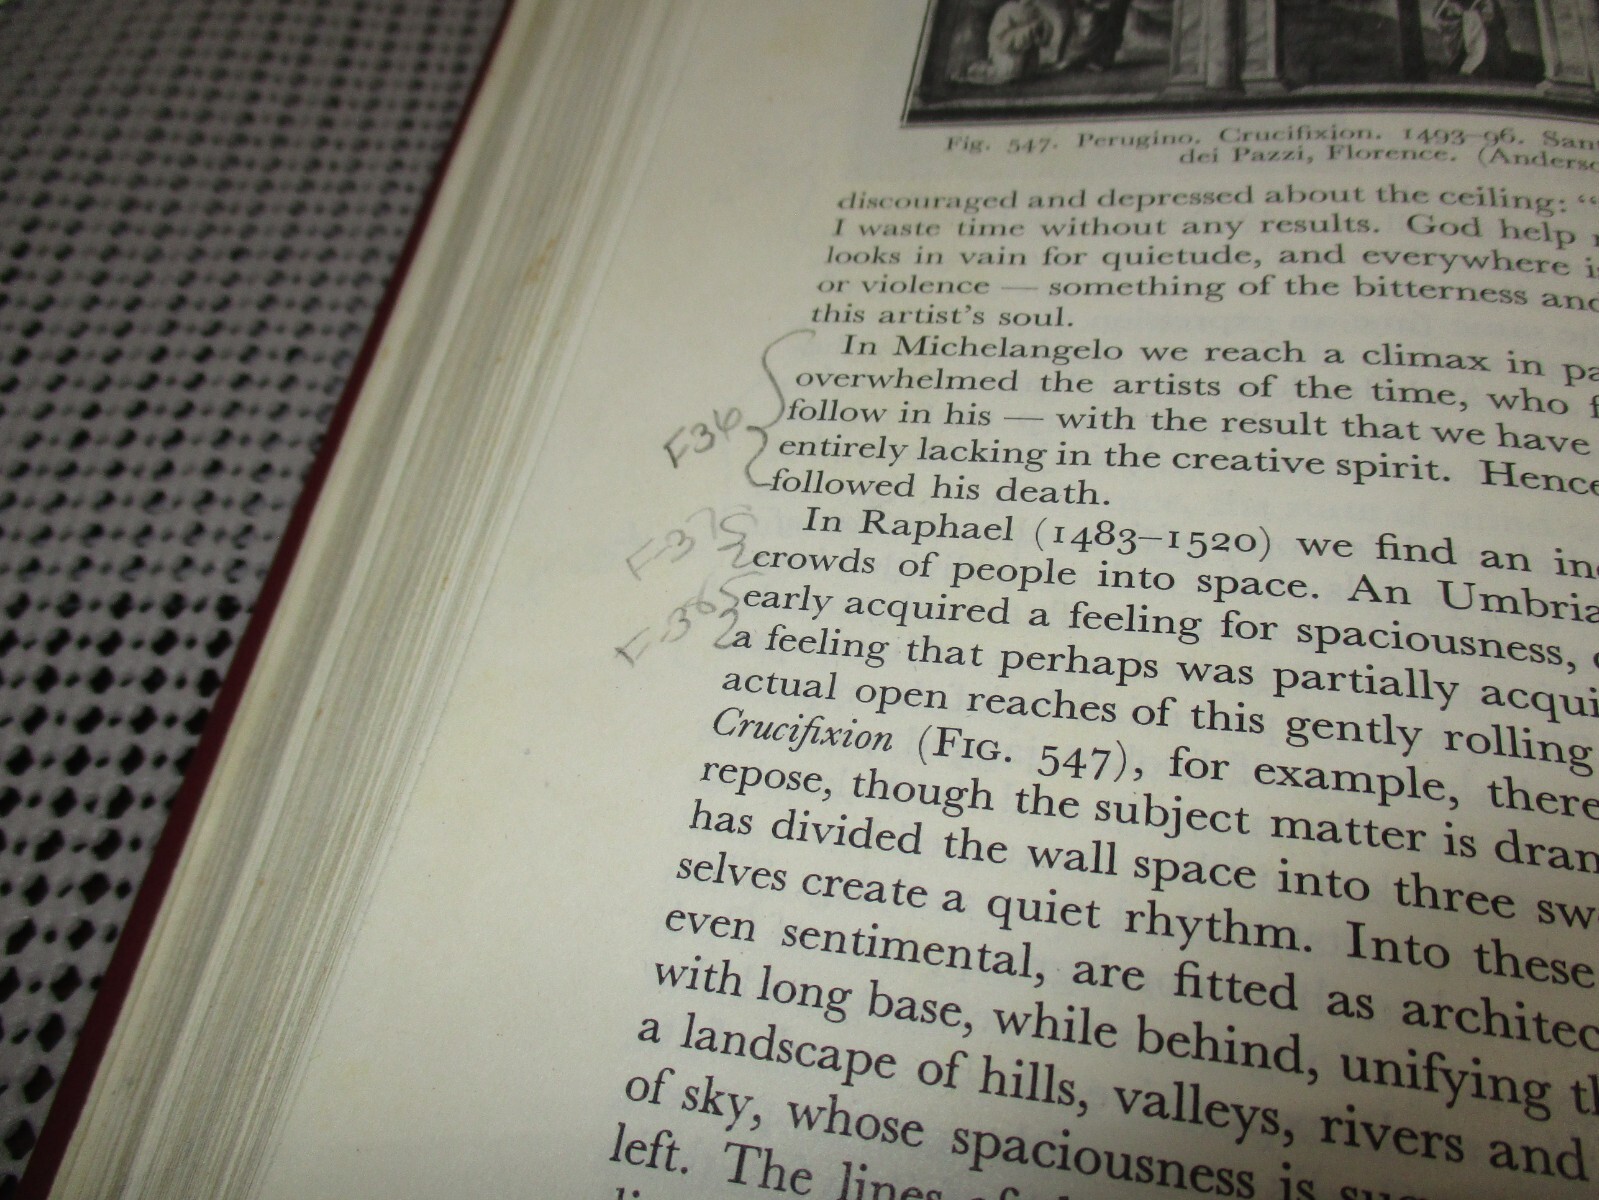 Fig. 547. Perugino. Crucifixion. 1493–96.
dei Pazzi, Florence.
discouraged and depressed about the ceiling: “
I waste time without any results. God help
looks in vain for quietude, and everywhere
or violence — something of the bitterness
this artist’s soul.
In Michelangelo we reach a climax in
overwhelmed the artists of the time, who
follow in his — with the result that we have
F36
entirely lacking in the creative spirit. Hence
followed his death.
In Raphael (1483–1520) we find an
F-37
crowds of people into space. An
F-36
early acquired a feeling for spaciousness,
a feeling that perhaps was partially
actual open reaches of this gently rolling
Crucifixion (FIG. 547), for example, there
repose, though the subject matter is
has divided the wall space into three
selves create a quiet rhythm. Into these
even sentimental, are fitted as
with long base, while behind, unifying
a landscape of hills, valleys, rivers and
of sky, whose spaciousness is
left. The lines